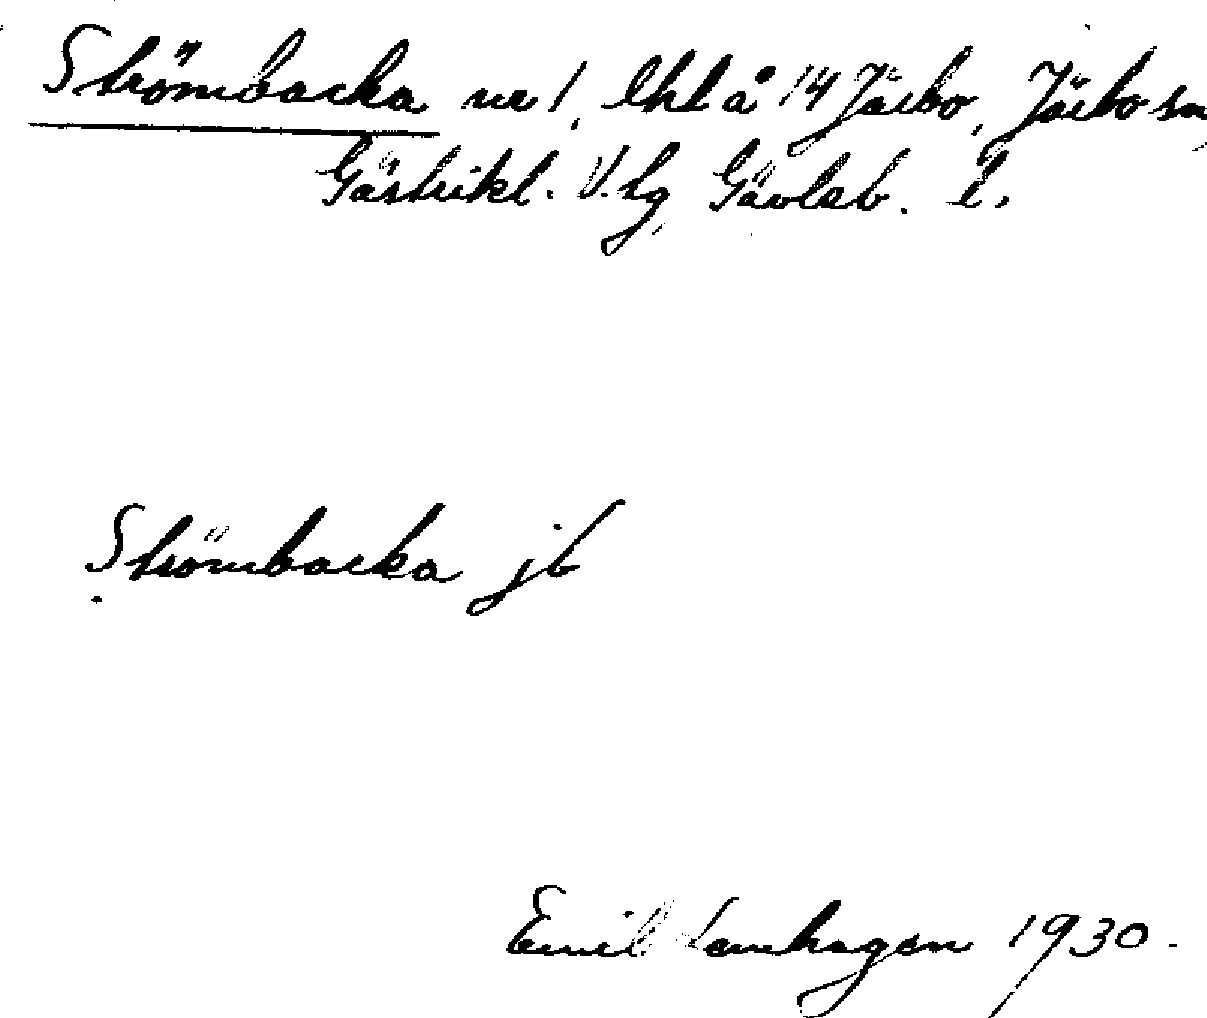 Strömbacka nr 1, lht å 14 Järbo, Järbo sn,
Gästrikl. V. tg, Gävleb. l.
Strömbacka jb
Emil Lamhagen 1930.